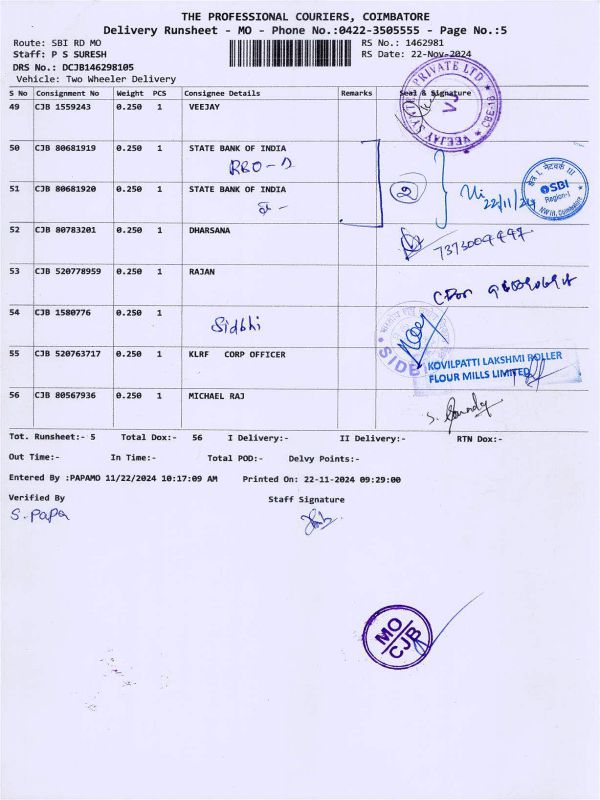 THE PROFESSIONAL COURIERS, COIMBATORE
Delivery Runsheet - MO - Phone No.:0422-3505555 - Page No.:5
Route: SBI RD MO RS No.: 1462981
Staff: P S SURESH RS Date: 22-Nov-2024
DRS No.: DCJB146298105
Vehicle: Two Wheeler Delivery
S No Consignment No Weight PCS Consignee Details Remarks Seal & Signature
49 CJB 1559243 0.250 1 VEEJAY
VJ
50 CJB 80681919 0.250 1 STATE BANK OF INDIA
RBO-
51 CJB 80681920 0.250 1 STATE BANK OF INDIA
2
22/11/24
SBI
Region-I
NW III, Coimbatore
52 CJB 80783201 0.250 1 DHARSANA
53 CJB 520778959 0.250 1 RAJAN
54 CJB 1580776 0.250 1
Sidbhi
55 CJB 520763717 0.250 1 KLRF CORP OFFICER
KOVILPATTI LAKSHMI ROLLER
FLOUR MILLS LIMITED
56 CJB 80567936 0.250 1 MICHAEL RAJ
Tot. Runsheet:- 5 Total Dox:- 56 I Delivery:- II Delivery:- RTN Dox:-
Out Time:- In Time:- Total POD:- Delvy Points:-
Entered By :PAPAMO 11/22/2024 10:17:09 AM Printed On: 22-11-2024 09:29:00
Verified By Staff Signature
S. PAPA
MO
CJB